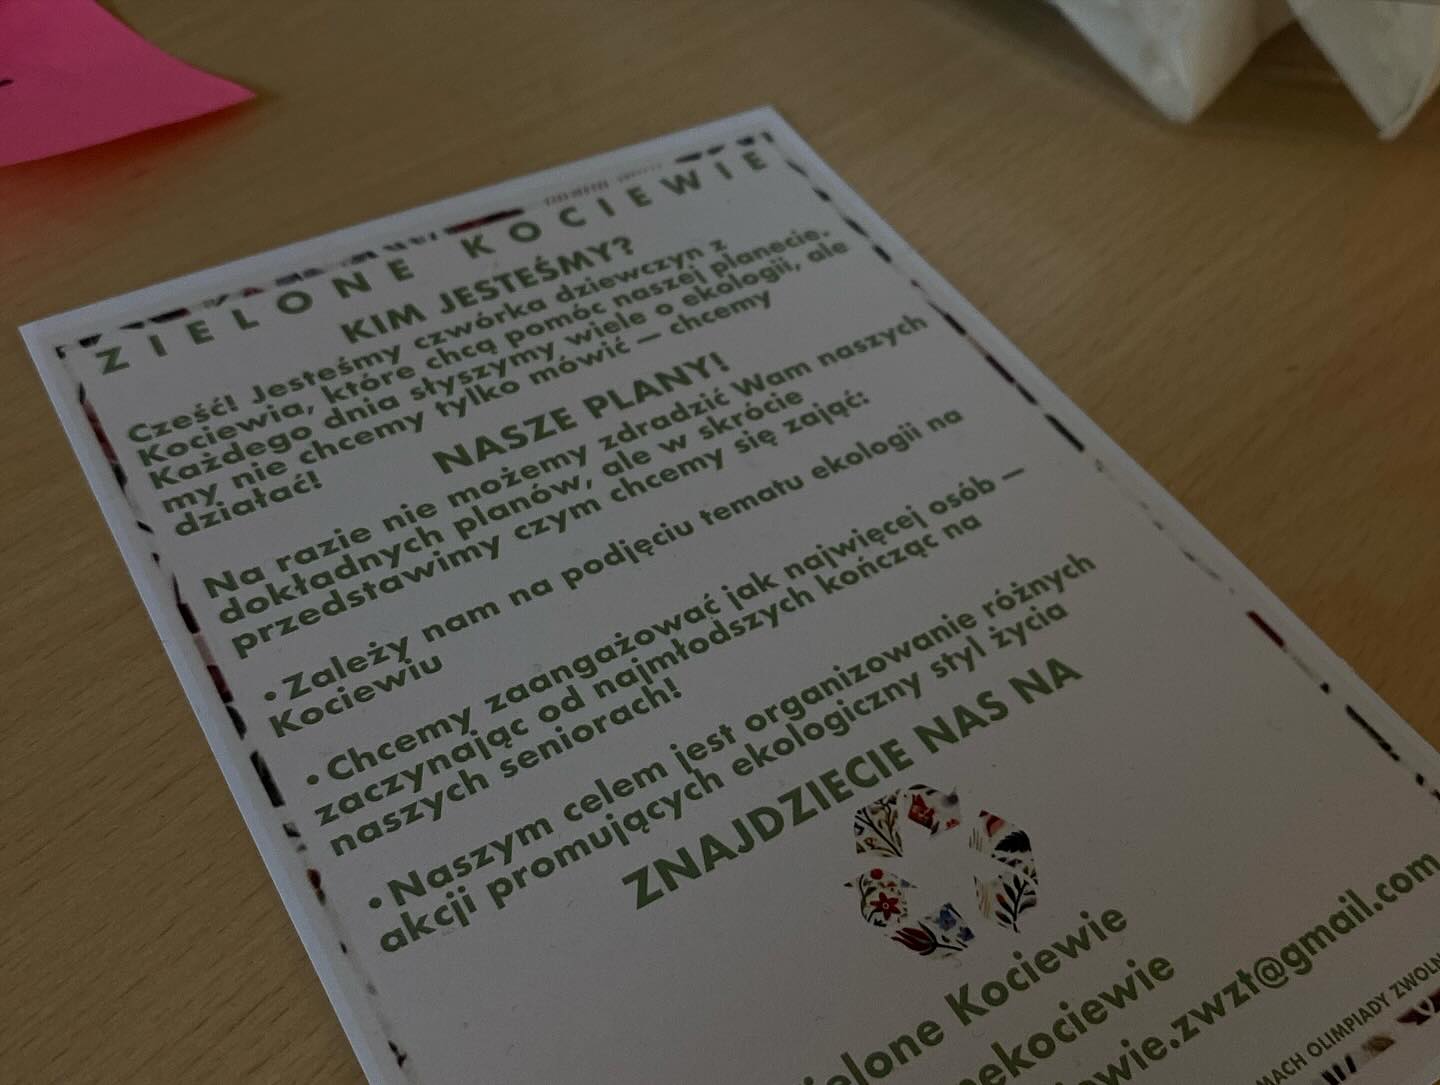 ZIELONE KOCIEWIE
KIM JESTEŚMY?
Cześć! Jesteśmy czwórka dziewczyn z
Kociewia, które chcą pomóc naszej planecie.
Każdego dnia słyszymy wiele o ekologii, ale
my nie chcemy tylko mówić – chcemy
działać!
NASZE PLANY!
Na razie nie możemy zdradzić Wam naszych
dokładnych planów, ale w skrócie
przedstawimy czym chcemy się zająć:
• Zależy nam na podjęciu tematu ekologii na
Kociewiu
• Chcemy zaangażować jak najwięcej osób –
zaczynając od najmłodszych kończąc na
naszych seniorach!
• Naszym celem jest organizowanie różnych
akcji promujących ekologiczny styl życia
ZNAJDZIECIE NAS NA
ielone Kociewie
nekociewie
iewie.zwzt@gmail.com
MACH OLIMPIADY ZWOLN